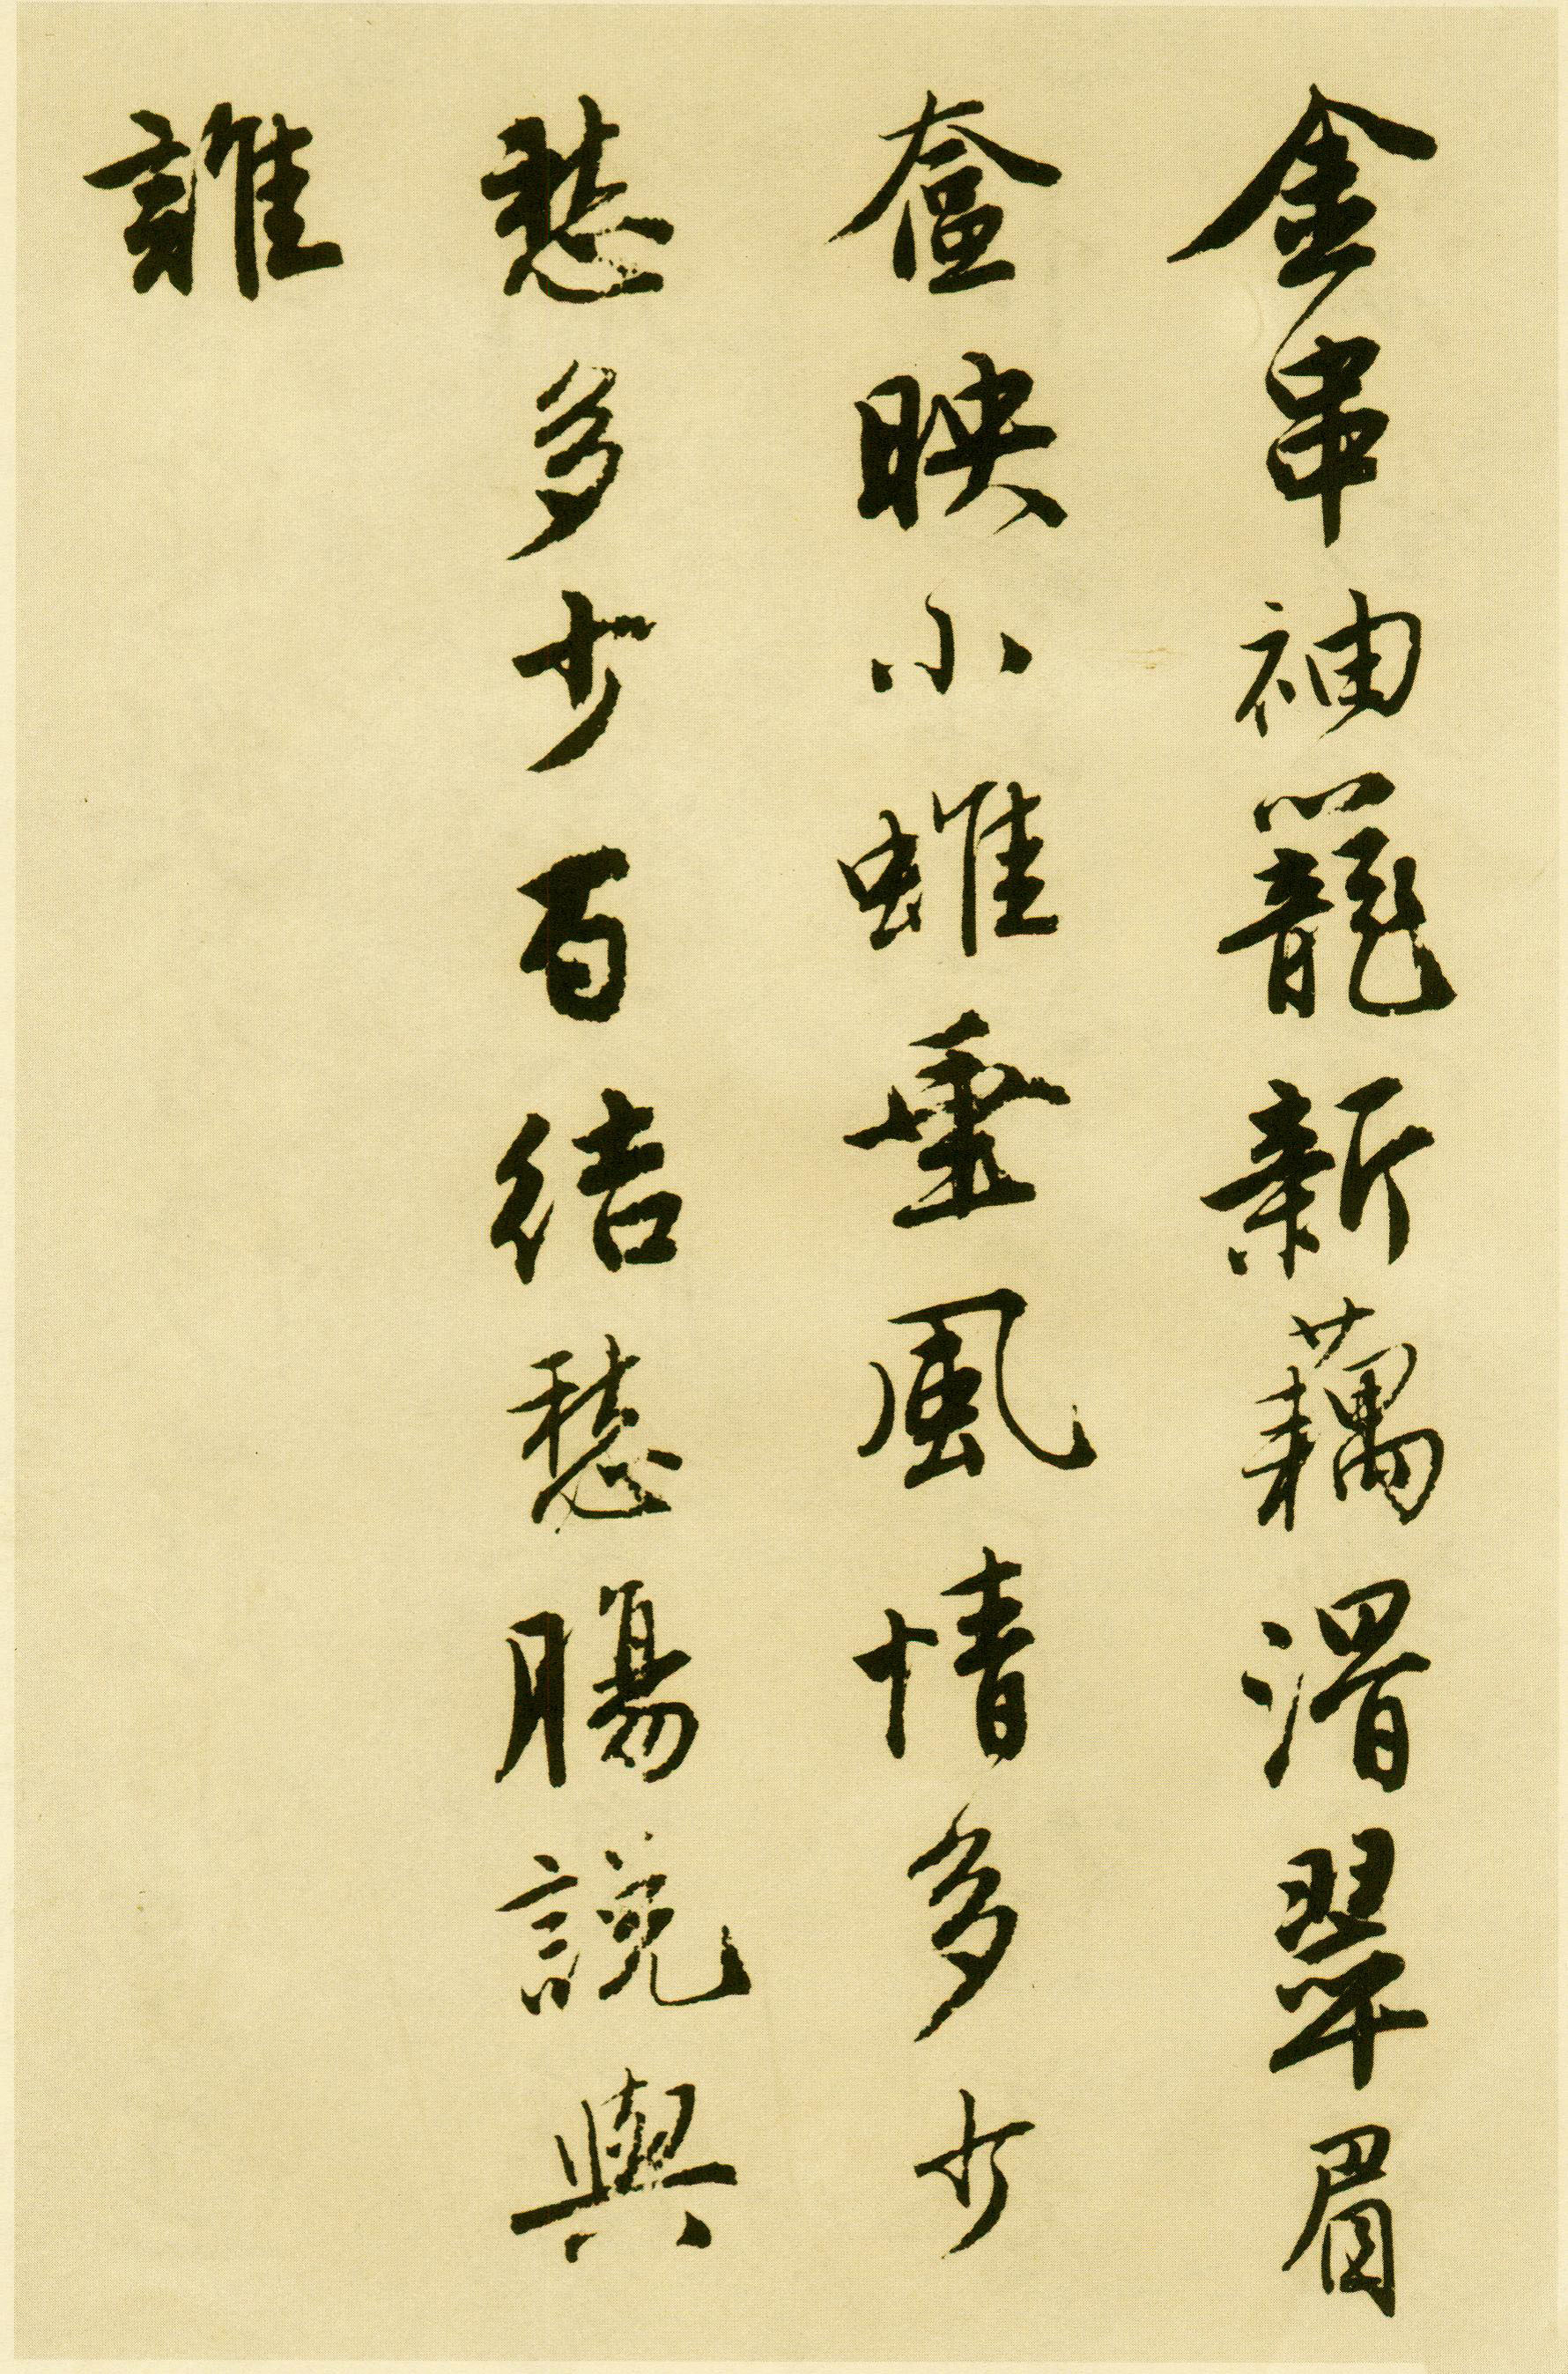 金串袖籠新藕滑翠眉
奩映小蜼重風情多少
愁多少百結愁腸說與
誰